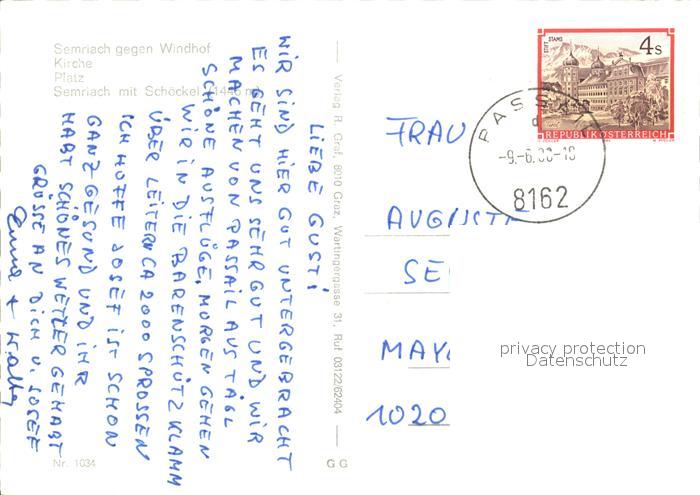 Semriach gegen Windhof
Kirche
Platz
Semriach mit Schöckel 1446 m
LIEBE GUSTI
WIR SIND HIER GUT UNTERGEBRACHT
ES GEHT UNS SEHR GUT UND WIR
MACHEN VON PASSAIL AUS TÄGL
SCHÖNE AUSFLÜGE, MORGEN GEHEN
WIR IN DIE BÄRENSCHÜTZ KLAMM
ÜBER LEITERN CA 2000 SPROSSEN
ICH HOFFE JOSEF IST SCHON
GANZ GESUND UND IHR
HABT SCHÖNES WETTER GEHABT
GRÜSSE AN DICH U. JOSEF
Verlag R. Graf, 8010 Graz, Wartingergasse 31, Ruf 03122/62404
Nr. 1034
G G
STIFT STAMS
4 S
REPUBLIK ÖSTERREICH
PASSAIL
8162
FRAU
AUGUSTE
SE
MAY
1020
privacy protection
Datenschutz